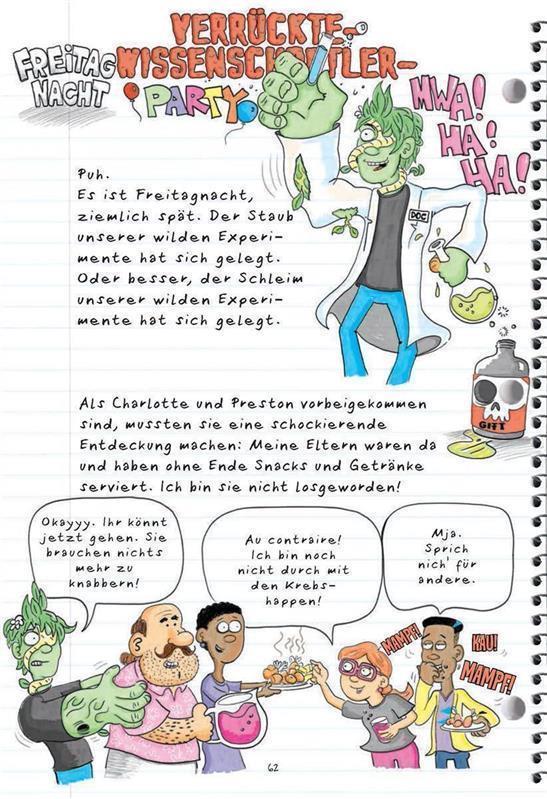 FREITAG
NACHT
VERRÜCKTE-
WISSENSCHAFTLER-
PARTY
MWA!
HA!
HA!
DOC
Puh.
Es ist Freitagnacht,
ziemlich spät. Der Staub
unserer wilden Experi-
mente hat sich gelegt.
Oder besser, der Schleim
unserer wilden Experi-
mente hat sich gelegt.
GIFT
Als Charlotte und Preston vorbeigekommen
sind, mussten sie eine schockierende
Entdeckung machen: Meine Eltern waren da
und haben ohne Ende Snacks und Getränke
serviert. Ich bin sie nicht losgeworden!
Okayyy. Ihr könnt
jetzt gehen. Sie
brauchen nichts
mehr zu
knabbern!
Au contraire!
Ich bin noch
nicht durch mit
den Krebs-
happen!
Mja.
Sprich
nich' für
andere.
MAMPF!
KAU!
MAMPF!
62